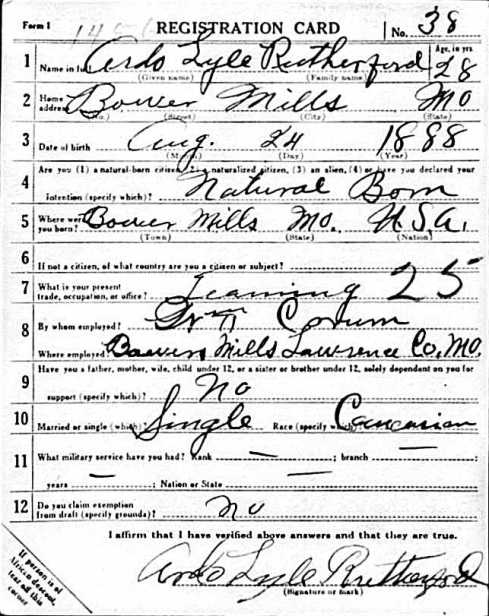 Form 1 REGISTRATION CARD No. 38
1 Name in full Ardo Lyle Rutherford Age, in yrs. 28
(Given name) (Family name)
2 Home address Bower Mills Mo
(No.) (Street) (City) (State)
3 Date of birth Aug. 24 1888
(Month) (Day) (Year)
Are you (1) a natural-born citizen, (2) a naturalized citizen, (3) an alien, (4) or have you declared your
4 intention (specify which)? Natural Born
5 Where were you born? Bower Mills Mo. U.S.A.
(Town) (State) (Nation)
6 If not a citizen, of what country are you a citizen or subject?
7 What is your present trade, occupation, or office? Teaming 25
8 By whom employed? Corum
Where employed? Bowers Mills Lawrence Co, Mo.
9 Have you a father, mother, wife, child under 12, or a sister or brother under 12, solely dependent on you for
support (specify which)? No
10 Married or single (which)? Single Race (specify which)? Caucasian
11 What military service have you had? Rank — ; branch — ;
years — ; Nation or State —
12 Do you claim exemption from draft (specify grounds)? No
I affirm that I have verified above answers and that they are true.
Ardo Lyle Rutherford
(Signature or mark)
If person is of
African descent,
tear off this
corner